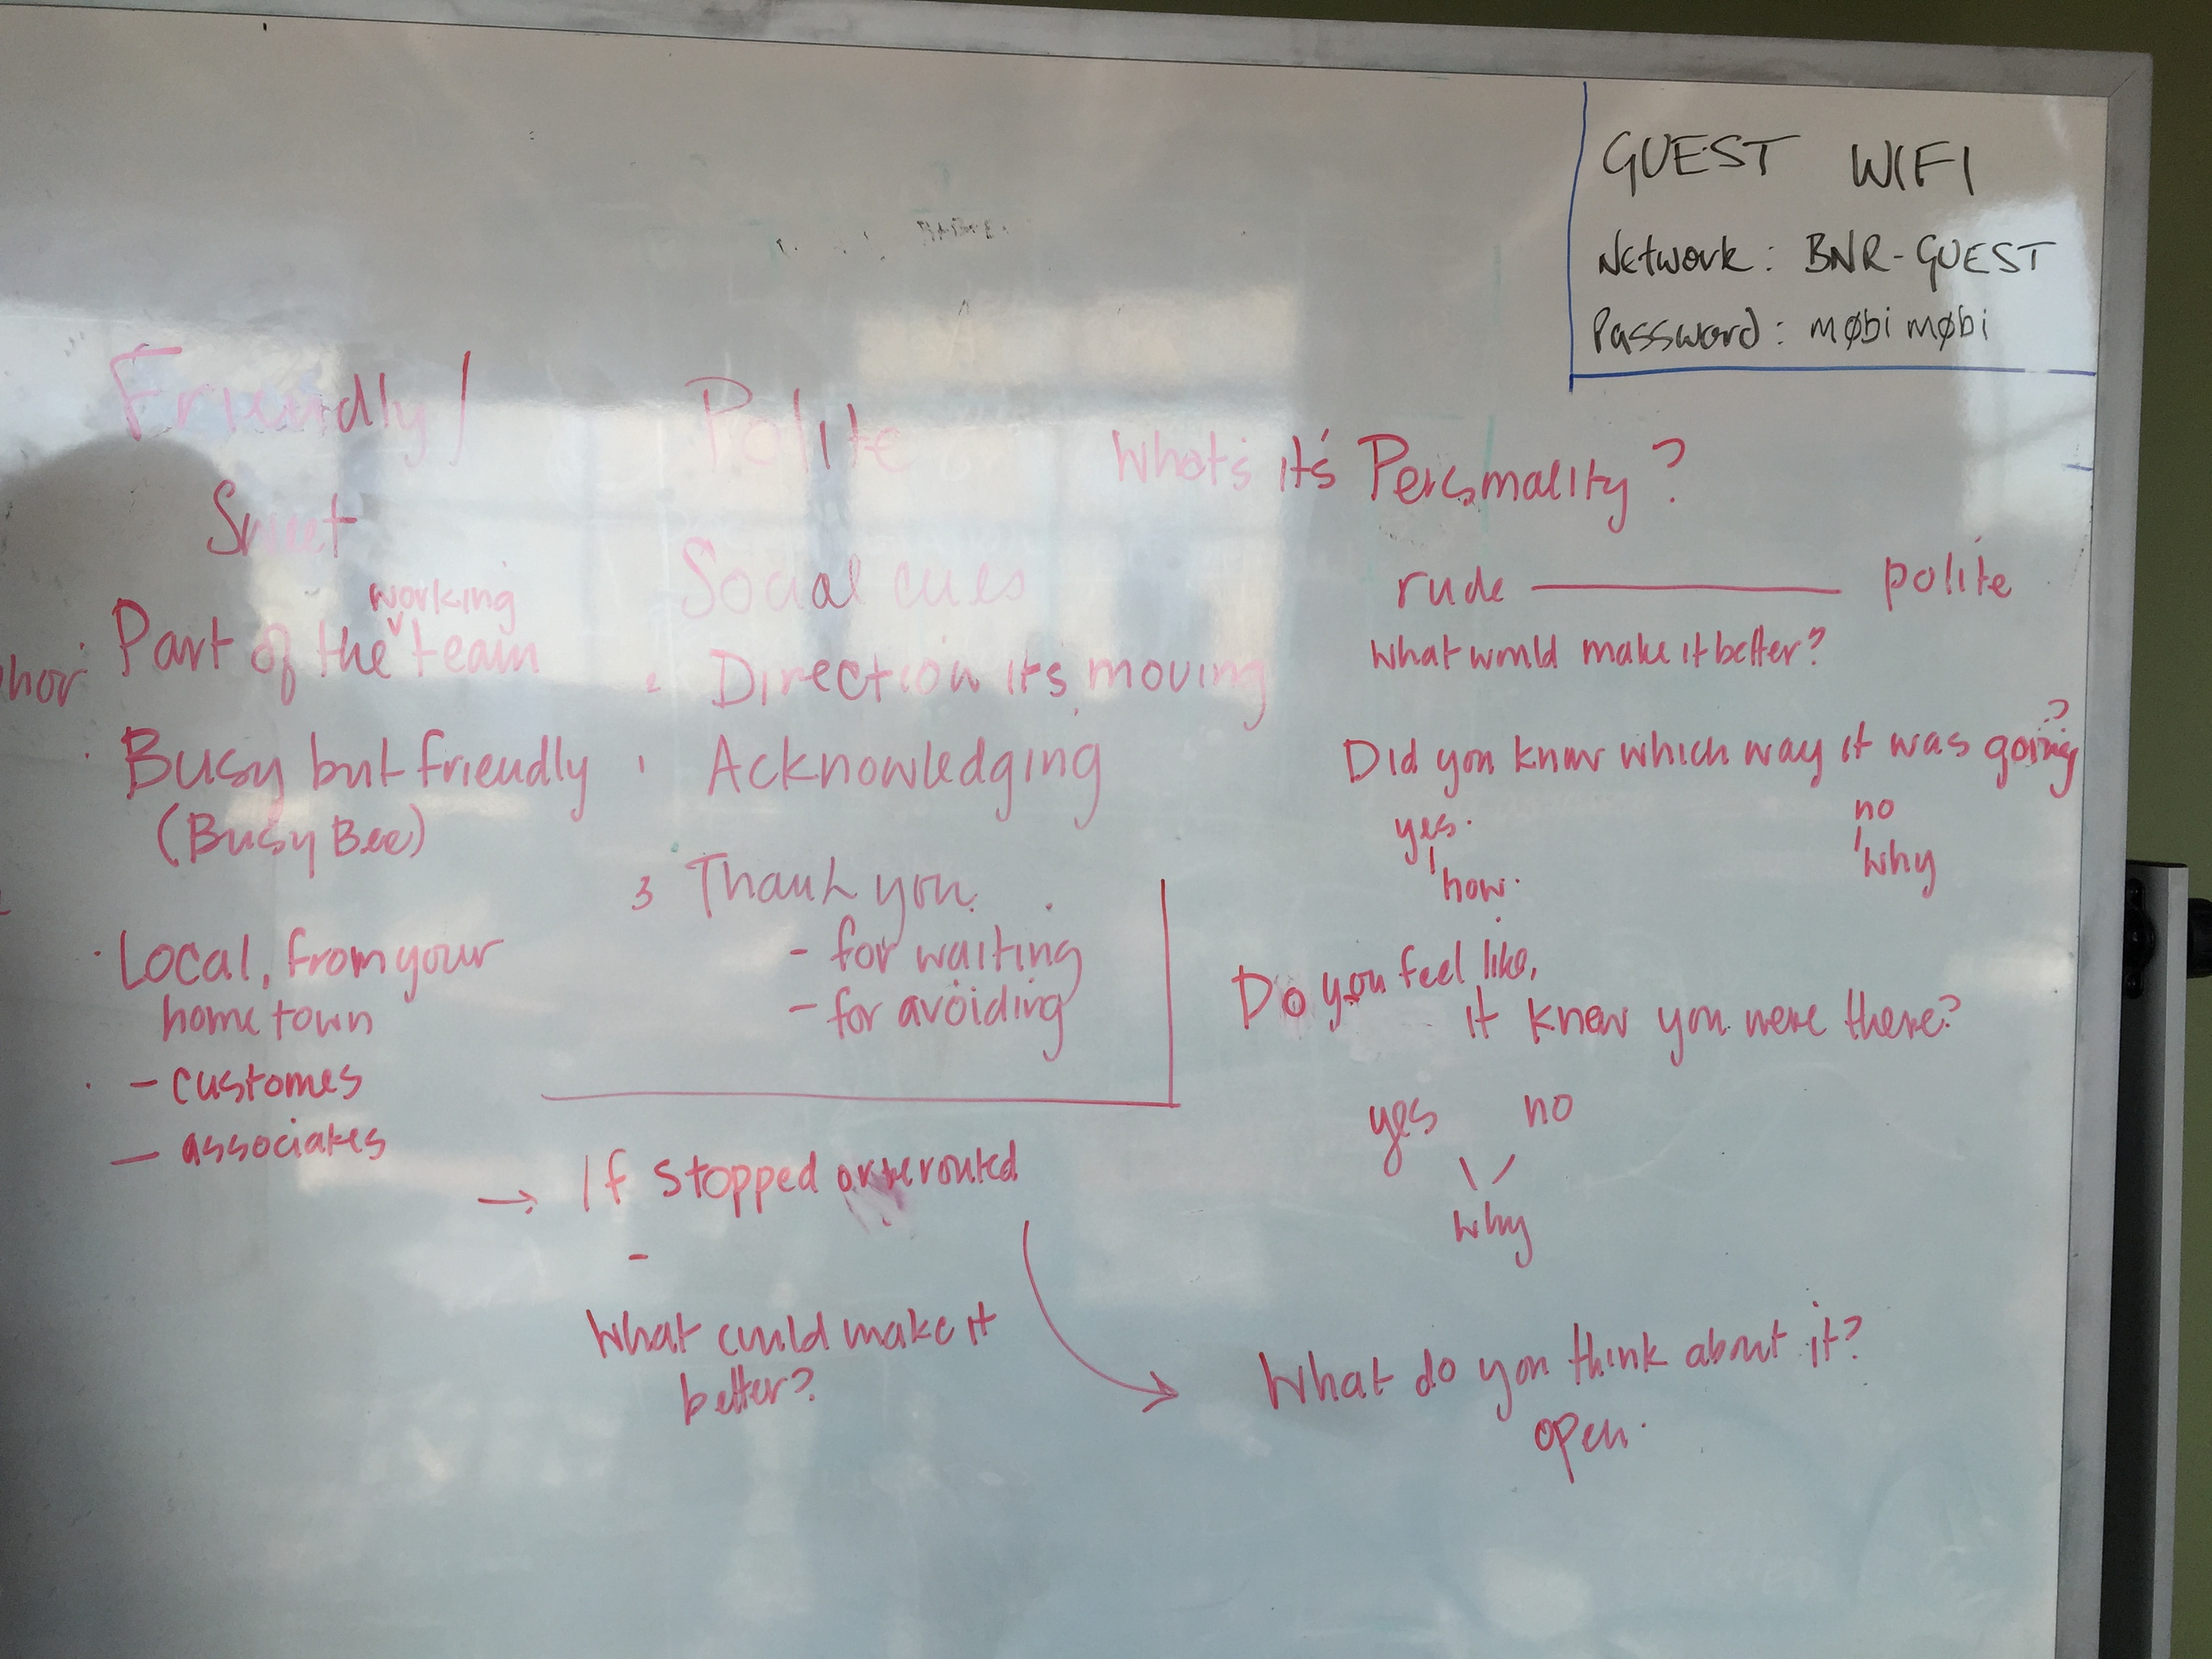 GUEST WIFI
Network: BNR-GUEST
Password: møbi møbi
Friendly/
Sweet
Part of the working team
Busy but friendly
(Busy Bee)
Local, from your
home town
- customes
- associates
Polite
Social cues
2 Direction its moving
1 Acknowledging
3 Thank you
- for waiting
- for avoiding
→ If stopped or rerouted
-
What could make it
better?
What's it's Personality?
rude polite
What would make it better?
Did you know which way it was going?
yes. no
how. why
Do you feel like,
it knew you were there?
yes no
why
What do you think about it?
open.